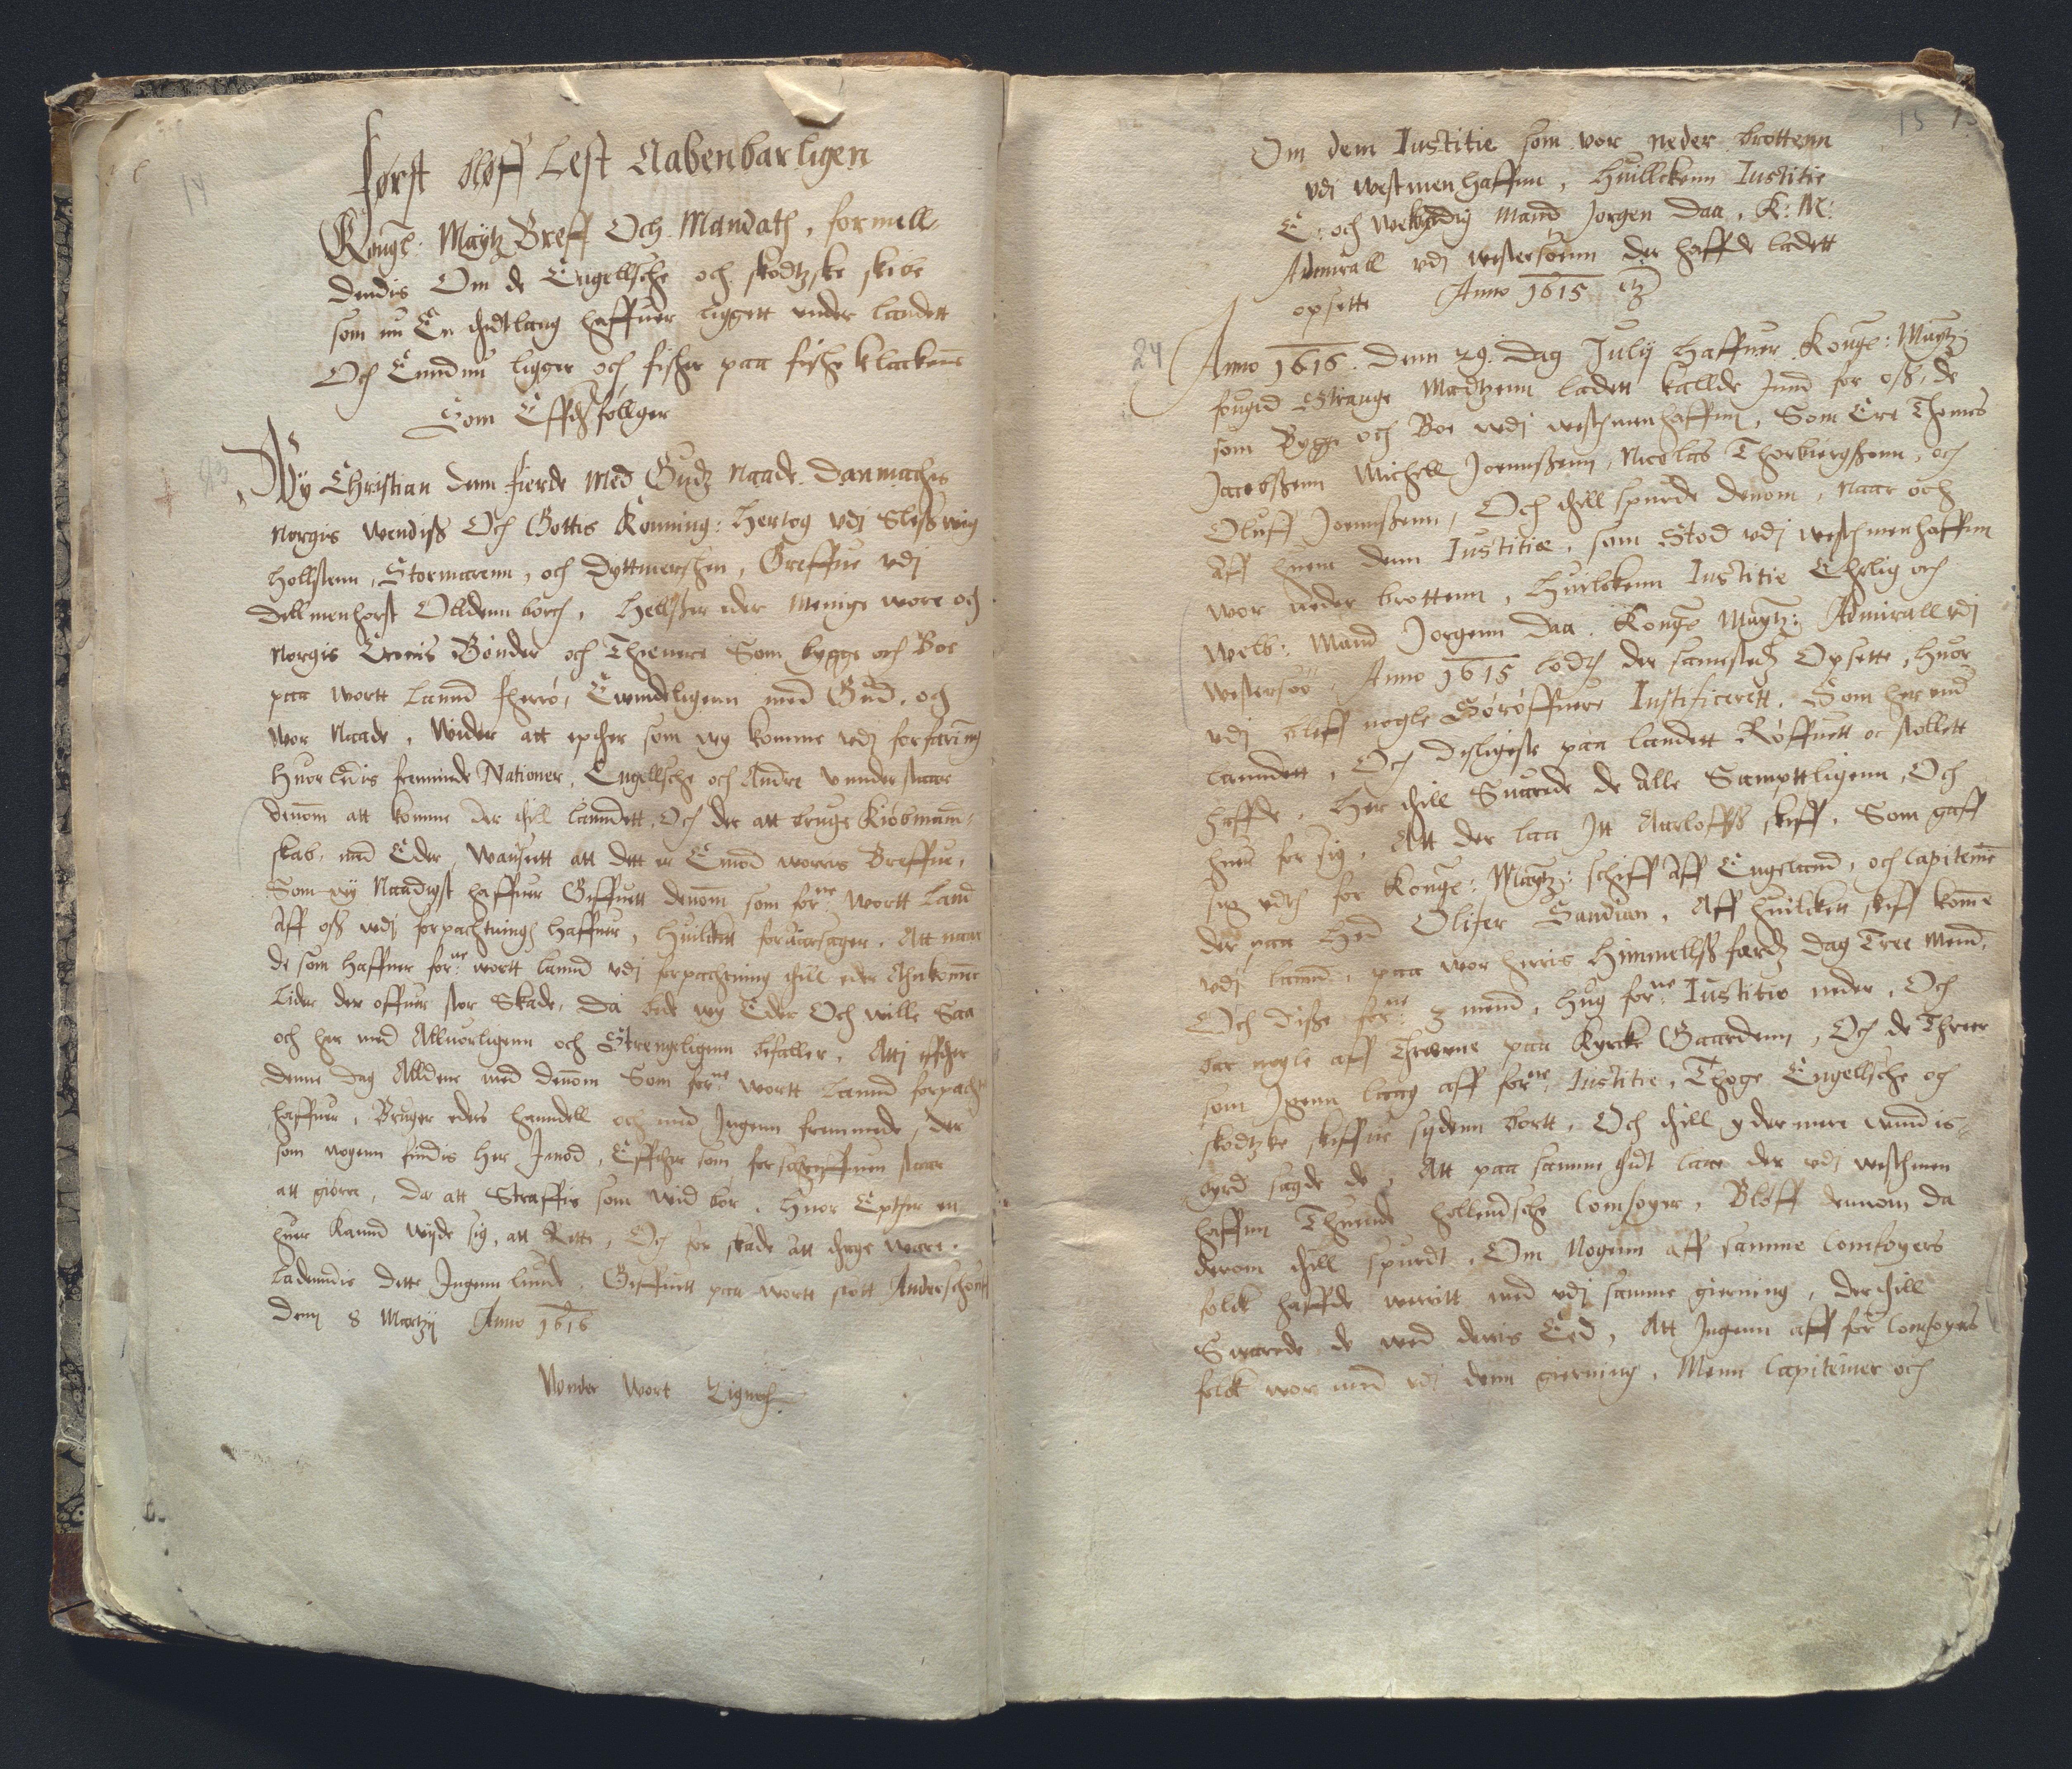 14
Først bløff Lest Aabenbarligen
Kongl: Maytz Breff Och Mandath, formell-
dendis Om de Engellsche och skodtzske skibe
som nu En thidtlang haffuer liggett vnder landett
Och Endnu ligger och fisher paa fishe klackene
Som Effther follger
23
Wy Christian denn fierde Med Gudz Naade Danmarchs
Norgis Wendiss Och Gottis Konning: Hertog vdj Slesswig
Hollstenn, Stormarenn, och Dyttmershen, Greffue vdj
Dellmenhorst Olldennborch, Hellsser eder Menige wore och
Norgis Cronis Bønder och Thienere Som bygge och Boe
paa wortt Lannd fherrø, Ewindeligenn med Gud, och
wor Naade, Wider att epther som wy komme vdj forfaring
Huorledis fremmede Nationer, Engellsche och Andre vnnderstaar
dennom att komme der thill lanndett, Och der att bruge Kiøbmann-
skab, med Eder, Wansett att dett er Emod worris Breffue,
Som wy Naadigst haffuer Giffuett dennom som forne wortt Land
Aff oss vdj forpachtningh haffuer, Huilckett foruaarsager, Att naar
de som haffuer forne wortt lannd vdj forpachtning thill eder Ahnkomme
Lider der offuer stor Skade, Da bede wy Eder Och wille Saa
och her med Alluorligenn och Strengeligenn befaller, Attj effther
denne Dag Alldene med dennom Som forne wortt Lannd forpacht
haffuer, Bruger eders hanndell och med Ingenn fremmede, Der
som nogenn findis Her Jmod, Effther som forschreffuen staar
att giøre, Da att Straffis som wid bør, Huor Epther en
huer kannd wide sig, att Rette, Och for skade att thage ware,
Ladendis dette Ingenn lunde, Giffuett paa wortt slott Anderschouff
Denn 8 Martzij Anno 1616
Vnnder Wort Zignett
15
Om dem Iustitie som vor neder brottenn
vdj Westmenhaffnn, Huillckenn Iustitie
E: och Welbyrdig Mand Jørgen Daa, K: M:
Admirall vdj westersøenn der haffde ladett
opsette Anno 1615 etz
24
Anno 1616. Denn 29. Dag Julij Haffuer Kongl: Maytz:
fougid Strange Madtzenn ladett kallde Jnnd for oss, de
som Bygge och Boe vdj westhmenhaffnn, Som Ere Thomes
Jacobssenn Michell Joennssenn, Nicolas Thorbiørgssonn, och
Oluff Joennssenn, Och thill spurde dennom, Naar och
Aff huem denn Iustitiæ, som Stod vdj westhmenhaffnn
wor neder brottenn, Huilckenn Iustitie Ehrlig och
Welb: Mand Jørgenn Daa Kongl Maytz: Admirall vdj
Westersøe, Anno 1615 lodtt der sammesteds Opsette, Huor
vdj bleff nogle Sørøffuere Iustificerett, Som her vnd
lanndett, Och desligeste paa landett Røffuett oc stollett
haffde, Her thill Suarede de Alle Sampttligenn, Och
huer for sig, Att der laa Itt Aarloffs skiff, Som gaff
sig vdtt for Kongl: Maytz: schiff aff Engeland, och Capitenne
der paa Hed Olifer Sandian, Aff huilckett skiff komme
vdj lannd, paa wor herris Himmellss færdz dag Tree Mend,
Och disse forne 3 mennd, hug forne Iustitie neder, Och
bar nogle aff Threerne paa Kyrcke Gaardenn, Och de Threer
som Jgenn laag aff forne Iustitie, Thoge Engellsche och
skodtzke skiffue sydenn bortt, Och thill ydermere wundis-
byrd sagde de, Att paa samme thidt laae der vdj westhmen
haffnn Thuende Hollendsche Consoyer, Bløff dennom da
derom thill spurdt, Om Nogenn aff samme Consoyers
folck haffde werritt med vdj samme gierning, Der thill
Swarede de med derris Eed, Att Ingenn aff for Consoyers
folck wor med vdj denn gierningh, Menn Capitenner och